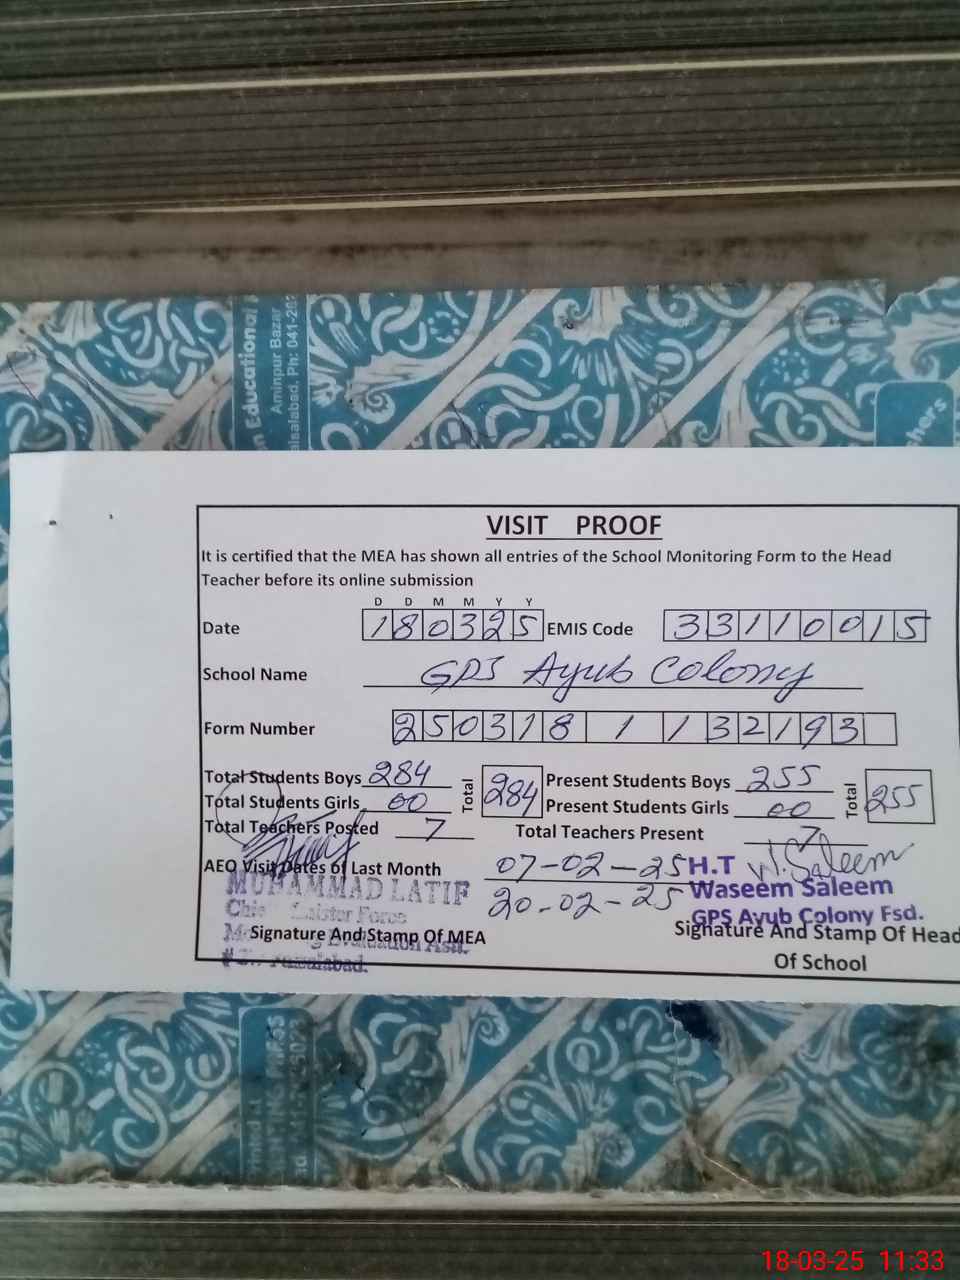 n Educational
Aminpur Bazar
aisalabad. Ph: 041-26
chers
VISIT PROOF
It is certified that the MEA has shown all entries of the School Monitoring Form to the Head
Teacher before its online submission
D D M M Y Y
Date 180325 EMIS Code 33110015
School Name GPS Ayub Colony
Form Number 250318 1 132193
Total Students Boys 284 Total 284 Present Students Boys 255 Total 255
Total Students Girls 00 Present Students Girls 00
Total Teachers Posted 7 Total Teachers Present 7
AEO Visit Dates of Last Month 07-02-25 H.T W.Saleem
MUHAMMAD LATIF 20-02-25 Waseem Saleem
GPS Ayub Colony Fsd.
Signature And Stamp Of MEA Signature And Stamp Of Head
Of School
18-03-25 11:33